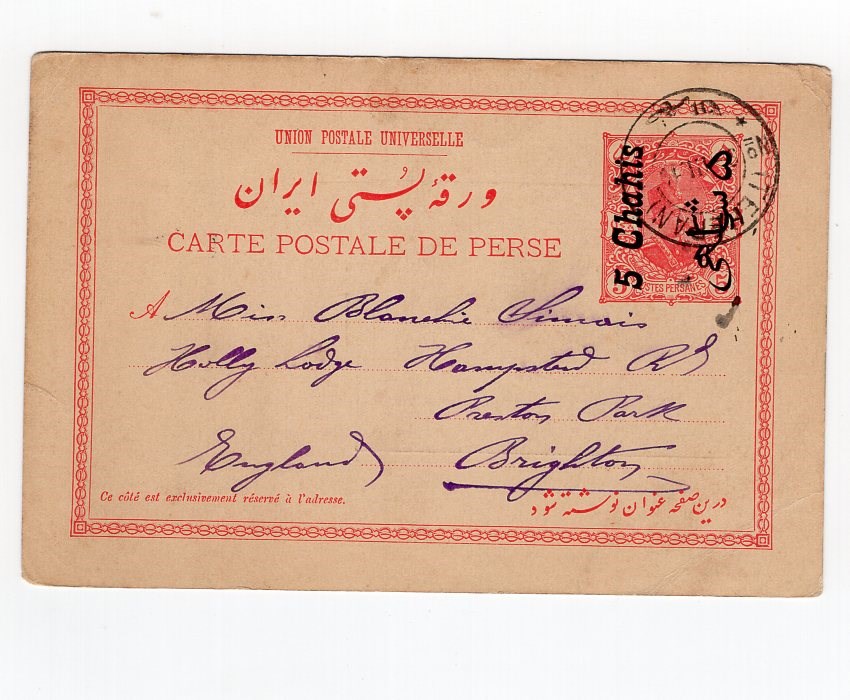 UNION POSTALE UNIVERSELLE
ورقهٔ پستی ایران
CARTE POSTALE DE PERSE
5 Chahis
POSTES PERSANES
TEHERAN
A Miss Blanche Simais
Holly Lodge Hampsted Rd
Preston Park
England Brighton
Ce côté est exclusivement réservé à l'adresse.
درین صفحه عنوان نوشته شود